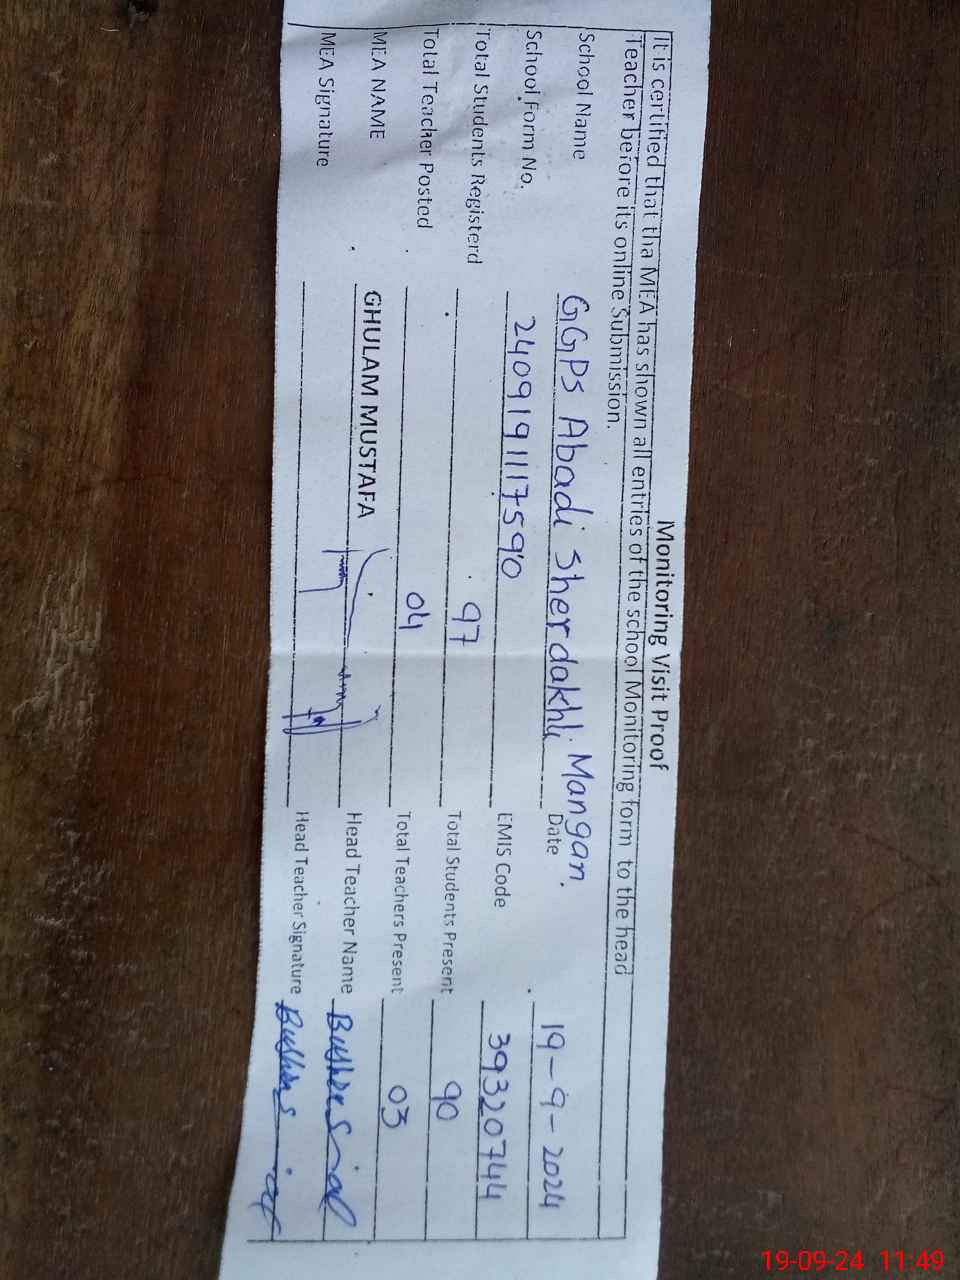 Monitoring Visit Proof
It is certified that tha MEA has shown all entries of the school Monitoring form to the head
Teacher before its online Submission.
School Name GGPS Abadi Sherdakhli Mangan. Date 19-9-2024
School Form No. 2409191117590 EMIS Code 39320744
Total Students Registerd 97 Total Students Present 90
Total Teacher Posted 04 Total Teachers Present 03
MEA NAME GHULAM MUSTAFA Head Teacher Name
MEA Signature Head Teacher Signature
19-09-24 11:49